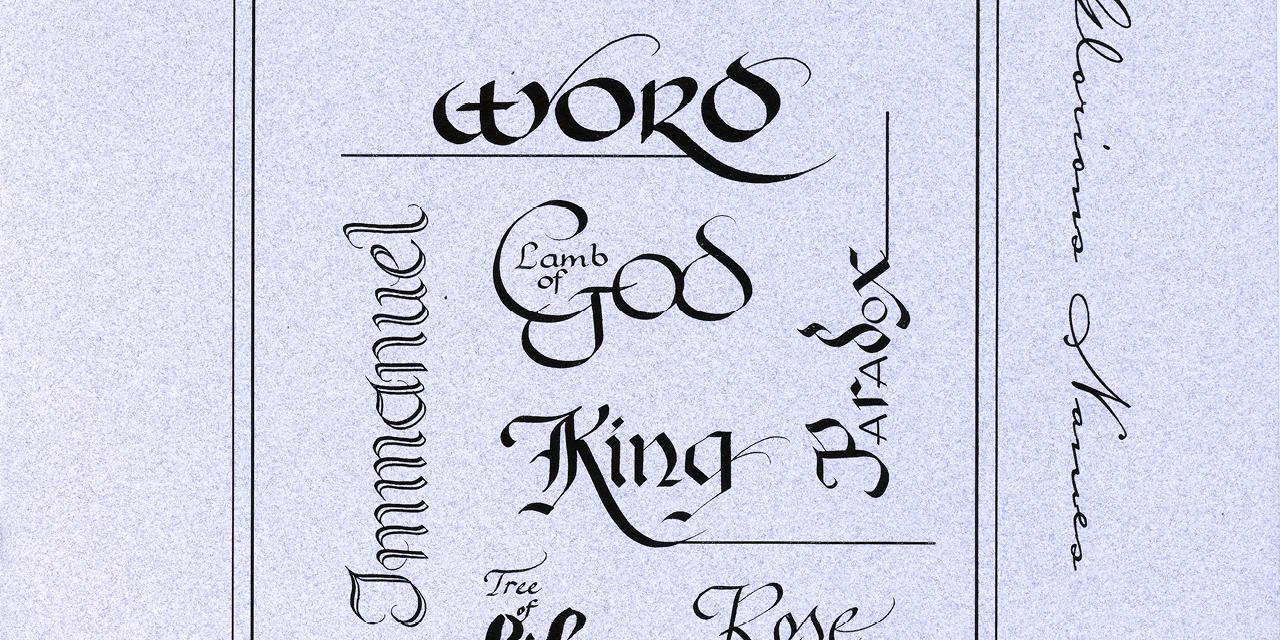 WORD
Immanuel
Lamb
of
God
Paradox
King
Tree
of
Rose
Glorious Names